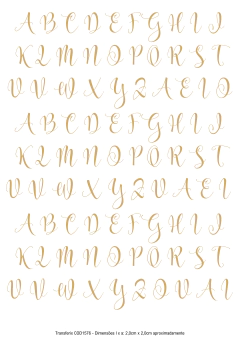 A B C D E F G H I J
K L M N O P Q R S T
U V W X Y Z A E I O
A B C D E F G H I J
K L M N O P Q R S T
U V W X Y Z U A E I
A B C D E F G H I J
K L M N O P Q R S T
U V W X Y Z O A U
Transferix COD1576 - Dimensões l x a: 2,0cm x 2,0cm aproximadamente